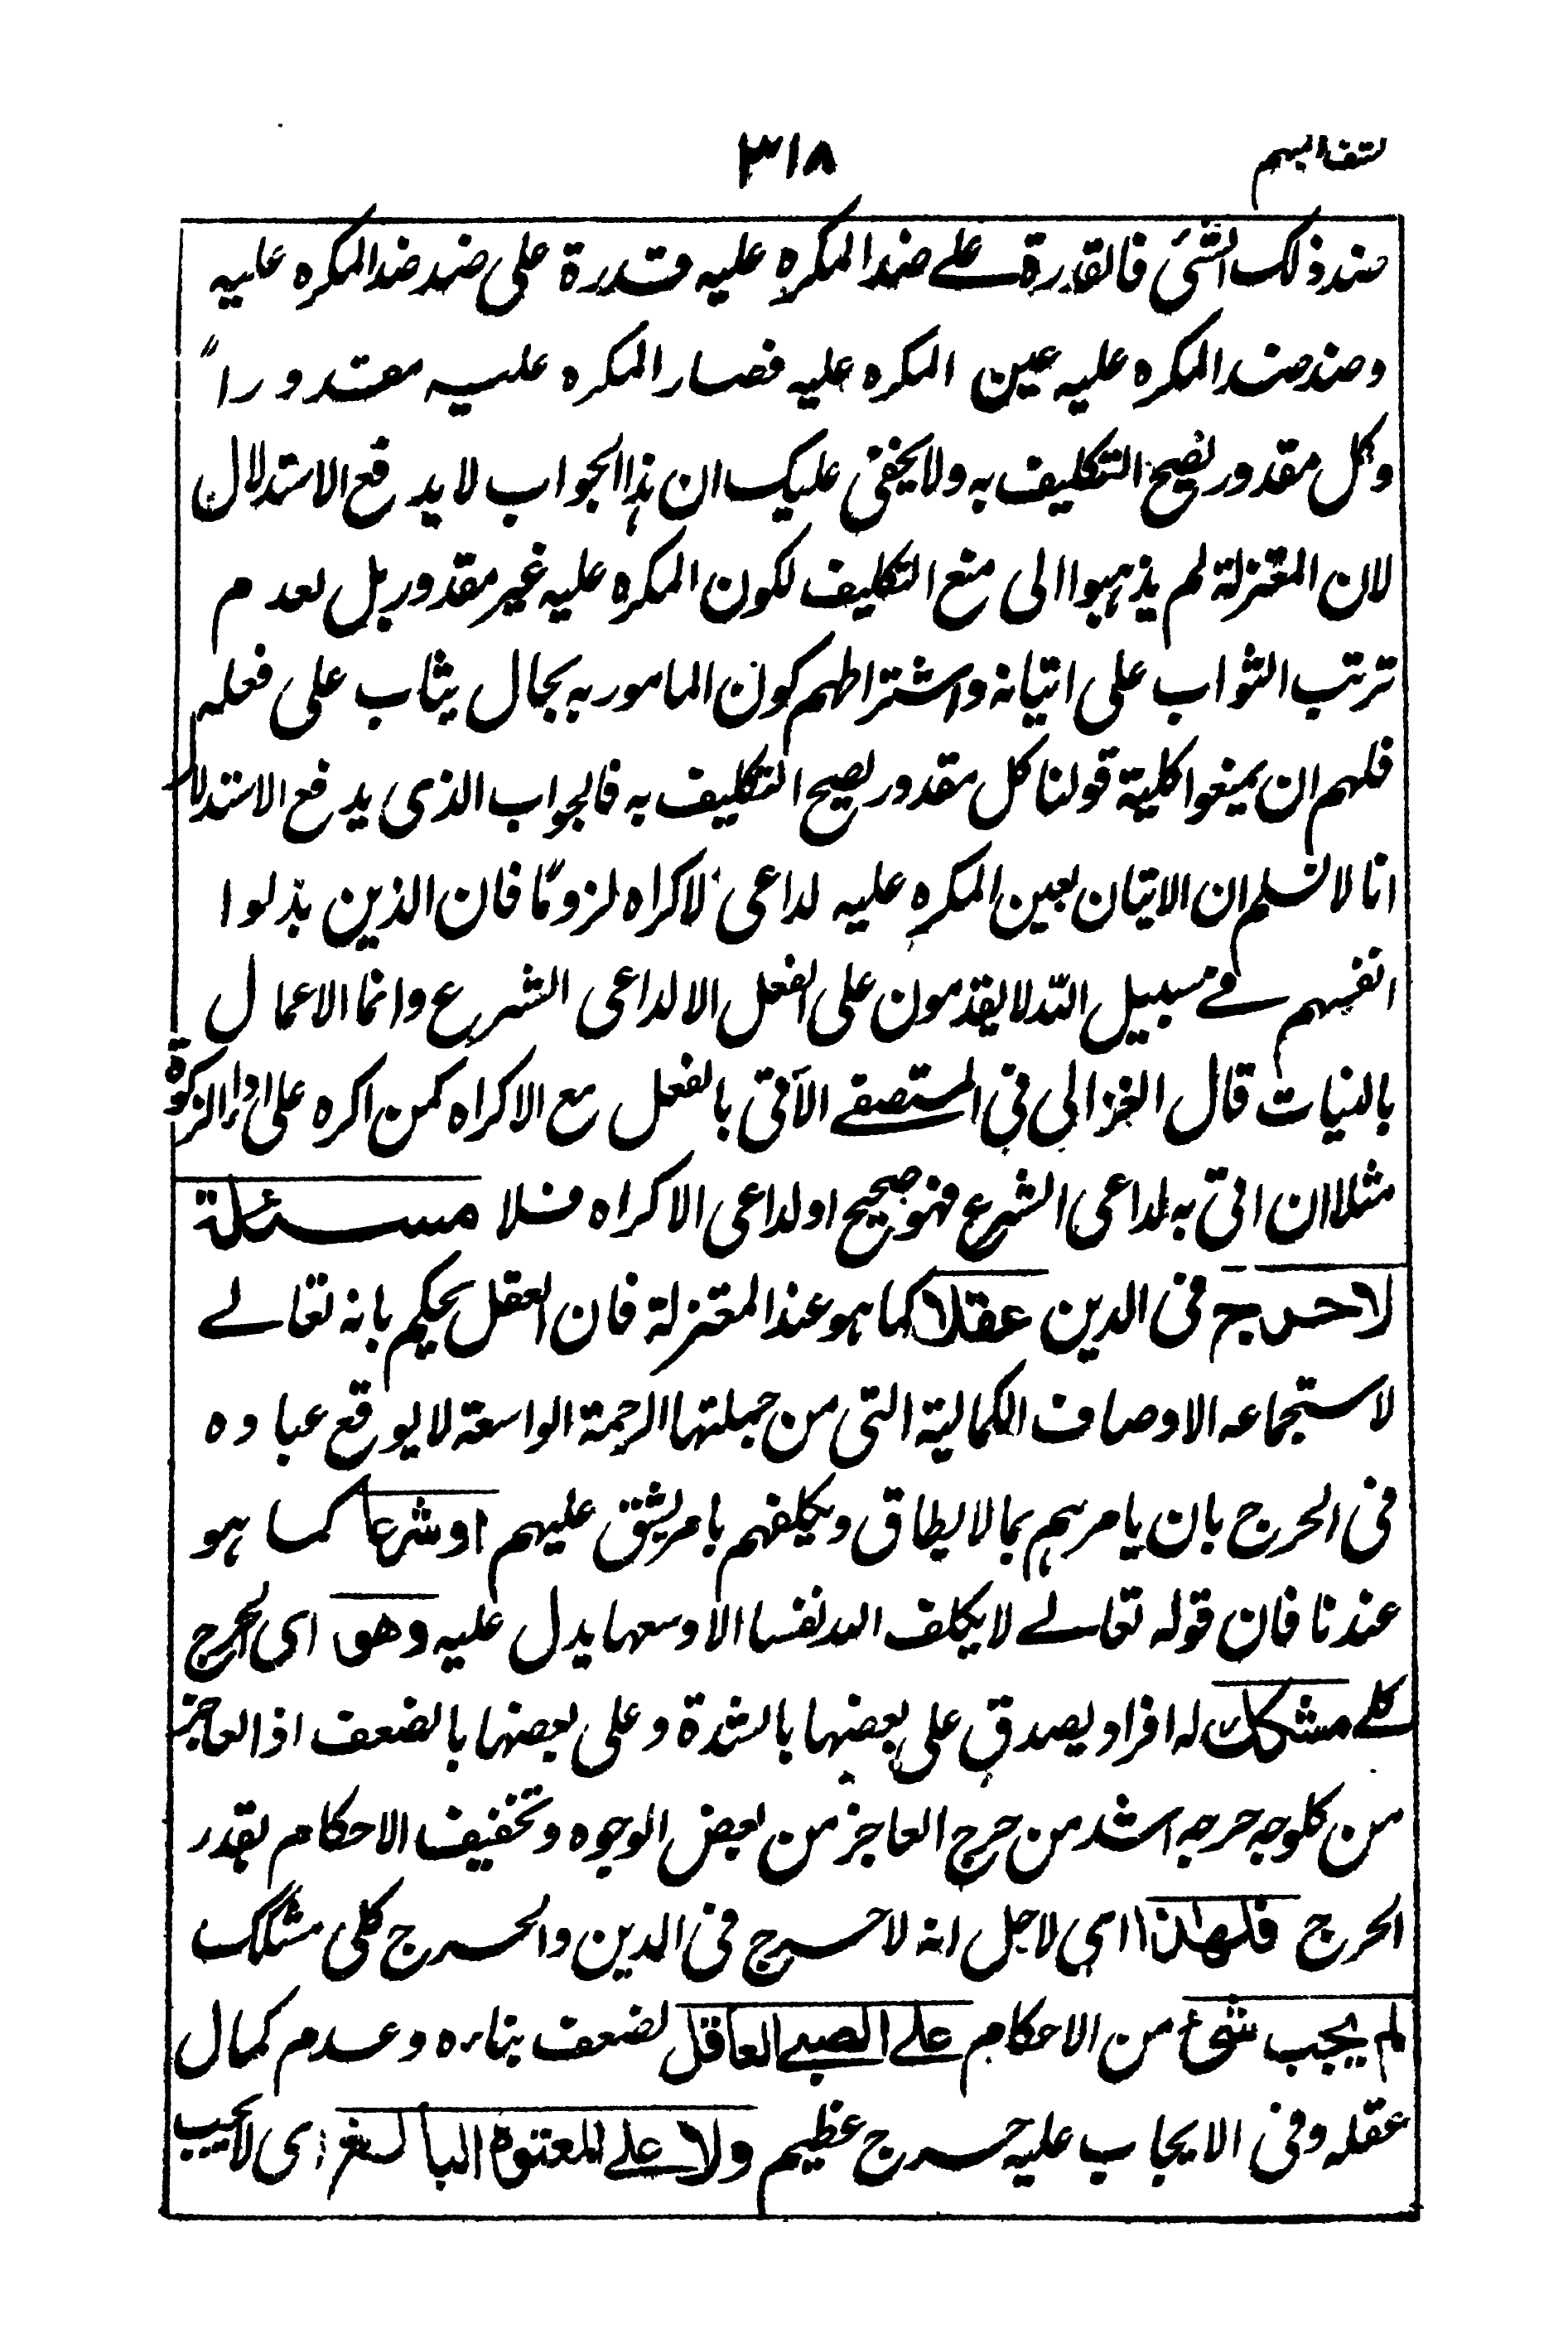 كشف المبهم
٣١٨
ضد ذلك الشئ فالقدرة على ضد المكره عليه قدرة على ضد ضد المكره عليه
وضد ضد المكره عليه عين المكره عليه فصار المكره عليه مقدوراً
وكل مقدور يصح التكليف به ولا يخفى عليك ان هذا الجواب لا يدفع الاستدلال
لان المعتزلة لم يذهبوا الى منع التكليف لكون المكره عليه غير مقدور بل لعدم
ترتب الثواب على اتيانه واشتراطهم كون المامور به بحال يثاب على فعله
فلهم ان يمنعوا كلية قولنا كل مقدور يصح التكليف به فالجواب الذى يدفع الاستدلال
انا لا نسلم ان الاتيان بعين المكره عليه لداعى الاكراه لزومًا فان الذين بذلوا
انفسهم فے سبيل الله لا يقدمون على الفعل الا لداعى الشرع وانما الاعمال
بالنيات قال الغزالي في المستصفے الآتى بالفعل مع الاكراه كمن اكره على اداء الزكوة
مثلا ان اتى به لداعى الشرع فهو صحيح او لداعى الاكراه فلا مسئلة
لا حرج فى الدين عقلا كما هو عند المعتزلة فان العقل يحكم بانه تعالے
لاستجماعه الاوصاف الكمالية التى من جملتها الرحمة الواسعة لا يوقع عباده
فى الحرج بان يامرهم بما لا يطاق ويكلفهم بامر يشق عليهم او شرعا كما هو
عندنا فان قوله تعالے لا يكلف الله نفسا الا وسعها يدل عليه وهو اى الحرج
كلے مشكك له افراد يصدق على بعضها بالشدة وعلى بعضها بالضعف اذ العاجز
من كلوجه حرجه اشد من حرج العاجز من بعض الوجوه وتخفيف الاحكام بقدر
الحرج فلهذا اى لاجل انه لا حرج فى الدين والحرج كلى مشكك
لم يجب شئ من الاحكام على الصبے العاقل لضعف بنائه وعدم كمال
عقله وفى الايجاب عليه حرج عظيم ولا علے المعتوه البالغ اى لا يجب